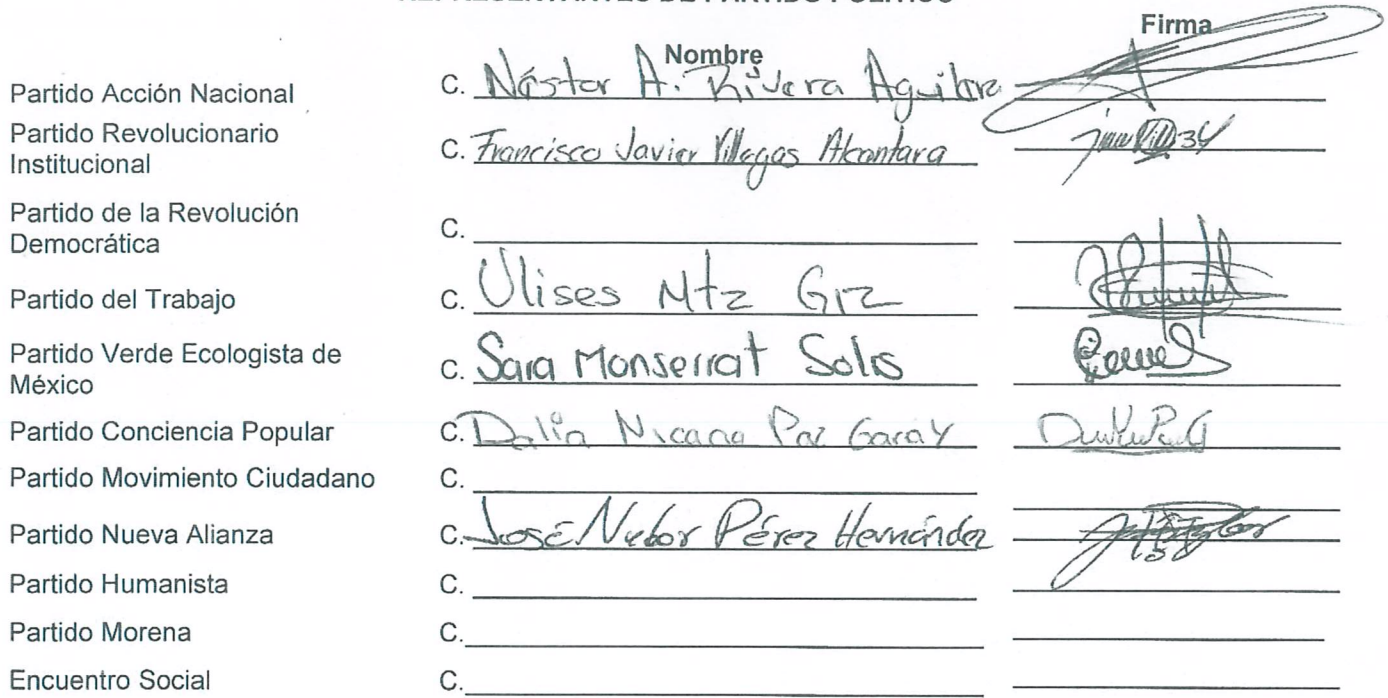 REPRESENTANTES DE PARTIDO POLÍTICO
Nombre Firma
Partido Acción Nacional C. Néstor A. Rivera Aguilera
Partido Revolucionario
Institucional C. Francisco Javier Villegas Alcantara
Partido de la Revolución
Democrática C.
Partido del Trabajo C. Ulises Mtz Grz
Partido Verde Ecologista de
México C. Sara Monserrat Solis
Partido Conciencia Popular C. Dalia Paz Garay
Partido Movimiento Ciudadano C.
Partido Nueva Alianza C. José Pérez Hernández
Partido Humanista C.
Partido Morena C.
Encuentro Social C.